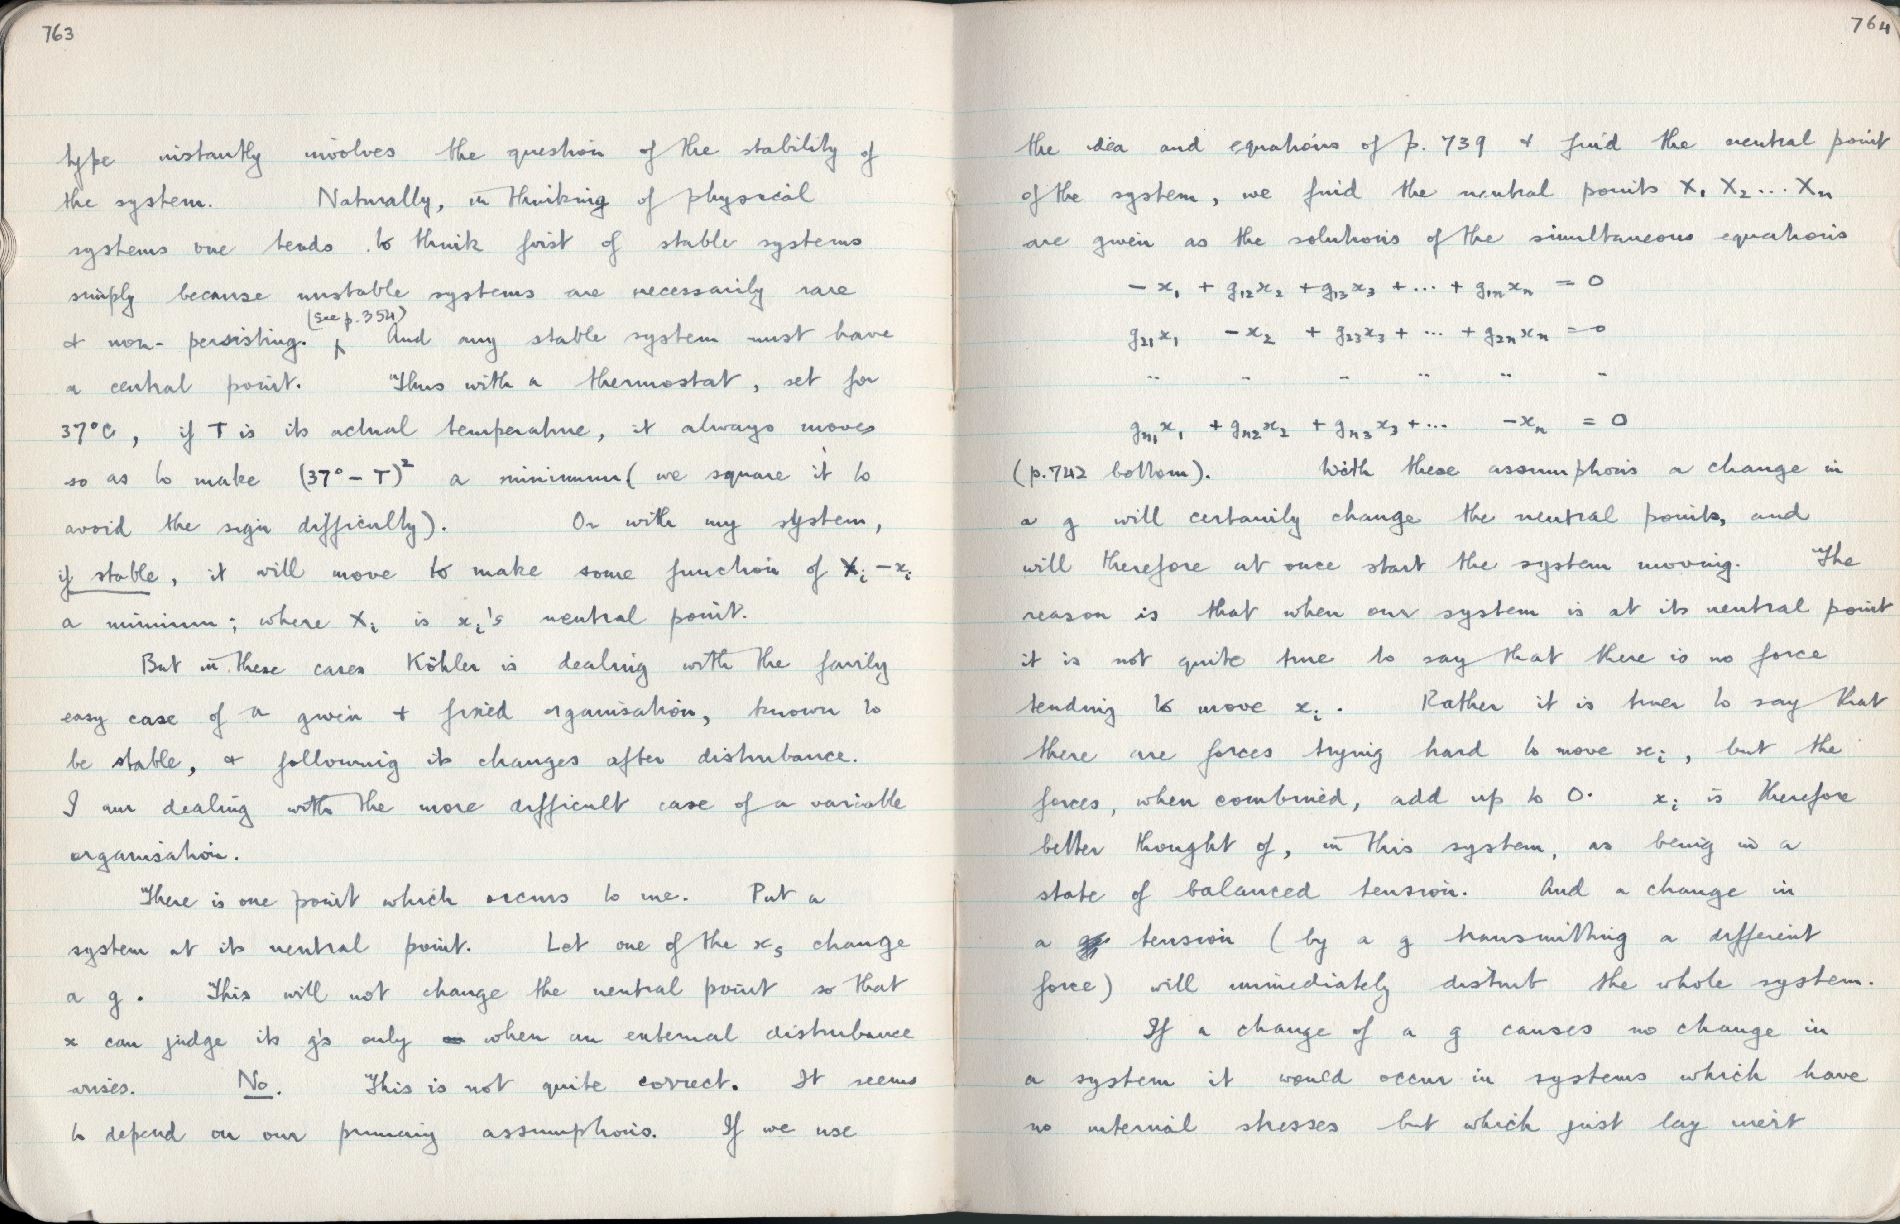 763
type instantly involves the question of the stability of
the system. Naturally, in thinking of physical
systems one tends to think first of stable systems
simply because unstable systems are necessarily rare
(See p. 354)
& non-persisting. ⁁ And any stable system must have
a central point. Thus with a thermostat, set for
37°C, if T is its actual temperature, it always moves
so as to make (37° – T)² a minimum (we square it to
avoid the sign difficulty). Or with my system,
if stable, it will move to make some function of Xᵢ – xᵢ
a minimum; where Xᵢ is xᵢ's neutral point.
But in these cases Köhler is dealing with the fairly
easy case of a given & fixed organisation, known to
be stable, & following its changes after disturbance.
I am dealing with the more difficult case of a variable
organisation.
There is one point which occurs to me. Put a
system at its neutral point. Let one of the xs change
a g. This will not change the neutral point so that
x can judge its g's only when an external disturbance
arises. No. This is not quite correct. It seems
to depend on our primary assumptions. If we use
764
the idea and equations of p. 739 & find the neutral point
of the system, we find the neutral points X₁ X₂ ... Xₙ
are given as the solutions of the simultaneous equations
– x₁ + g₁₂x₂ + g₁₃x₃ + ... + g₁ₙxₙ = 0
g₂₁x₁ – x₂ + g₂₃x₃ + ... + g₂ₙxₙ = 0
.. .. .. .. .. ..
gₙ₁x₁ + gₙ₂x₂ + gₙ₃x₃ + ... – xₙ = 0
(p. 742 bottom). With these assumptions a change in
a g will certainly change the neutral points, and
will therefore at once start the system moving. The
reason is that when our system is at its neutral point
it is not quite true to say that there is no force
tending to move xᵢ. Rather it is truer to say that
there are forces trying hard to move xᵢ, but the
forces, when combined, add up to 0. xᵢ is therefore
better thought of, in this system, as being in a
state of balanced tension. And a change in
a tension (by a g transmitting a different
force) will immediately disturb the whole system.
If a change of a g causes no change in
a system it would occur in systems which have
no internal stresses but which just lay inert